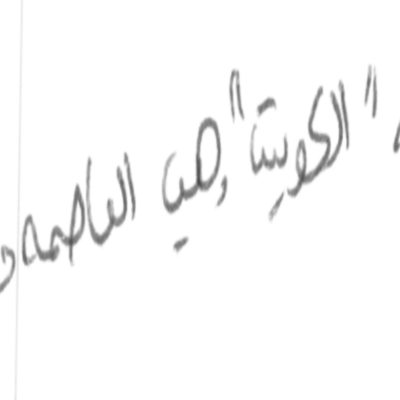 "الكويت" وهي العاصمه